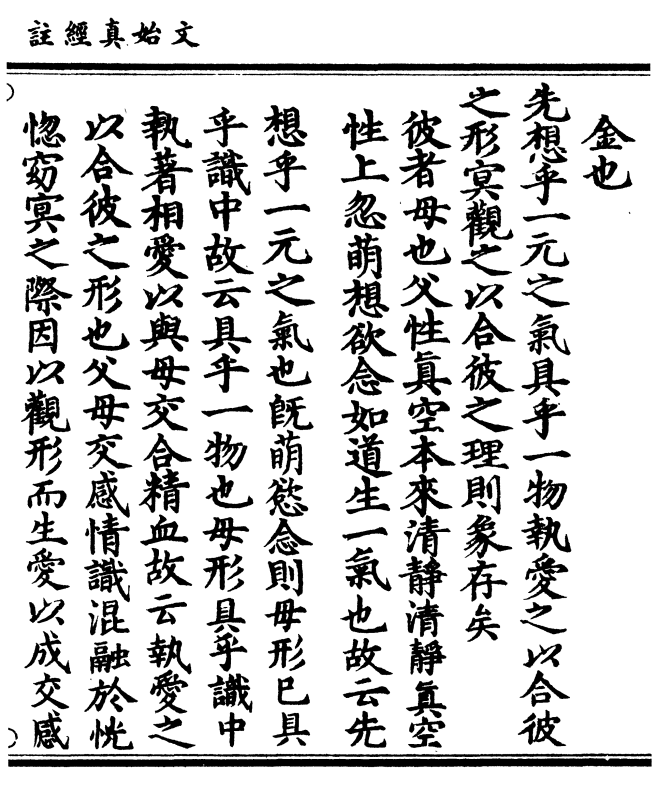 文始真經註
金也
先想乎一元之氣具乎一物執愛之以合彼
之形冥觀之以合彼之理則象存矣
彼者母也父性真空本來清靜清靜真空
性上忽萌想欲念如道生一氣也故云先
想乎一元之氣也既萌慾念則母形巳具
乎識中故云具乎一物也母形具乎識中
執著相愛以與母交合精血故云執愛之
以合彼之形也父母交感情識混融於恍
惚窈冥之際因以觀形而生愛以成交感